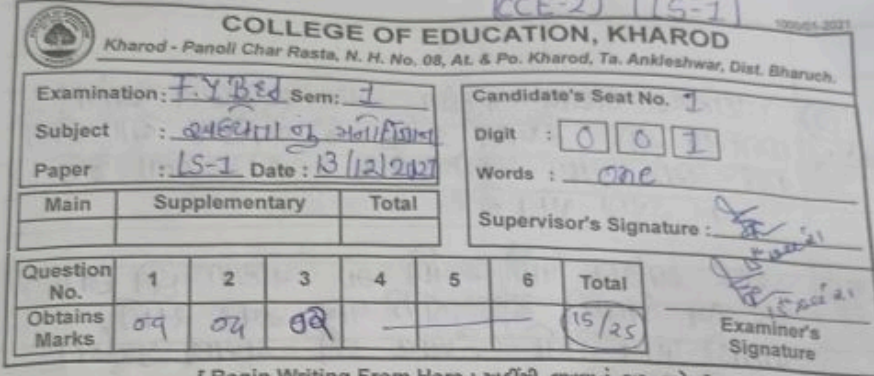 CCE-2 LS-1
1000/01-2021
COLLEGE OF EDUCATION, KHAROD
Kharod - Panoli Char Rasta, N. H. No. 08, At. & Po. Kharod, Ta. Ankleshwar, Dist. Bharuch.
Examination: F.Y B.Ed Sem: 1
Subject : અધ્યેતા નું મનોવિજ્ઞાન
Paper : LS-1 Date : 13/12/2021
Main Supplementary Total
Candidate's Seat No. 1
Digit : 0 0 1
Words : one
Supervisor's Signature :
Question No. 1 2 3 4 5 6 Total
Obtains Marks 15/25
Examiner's Signature
[ Begin Writing From Here :